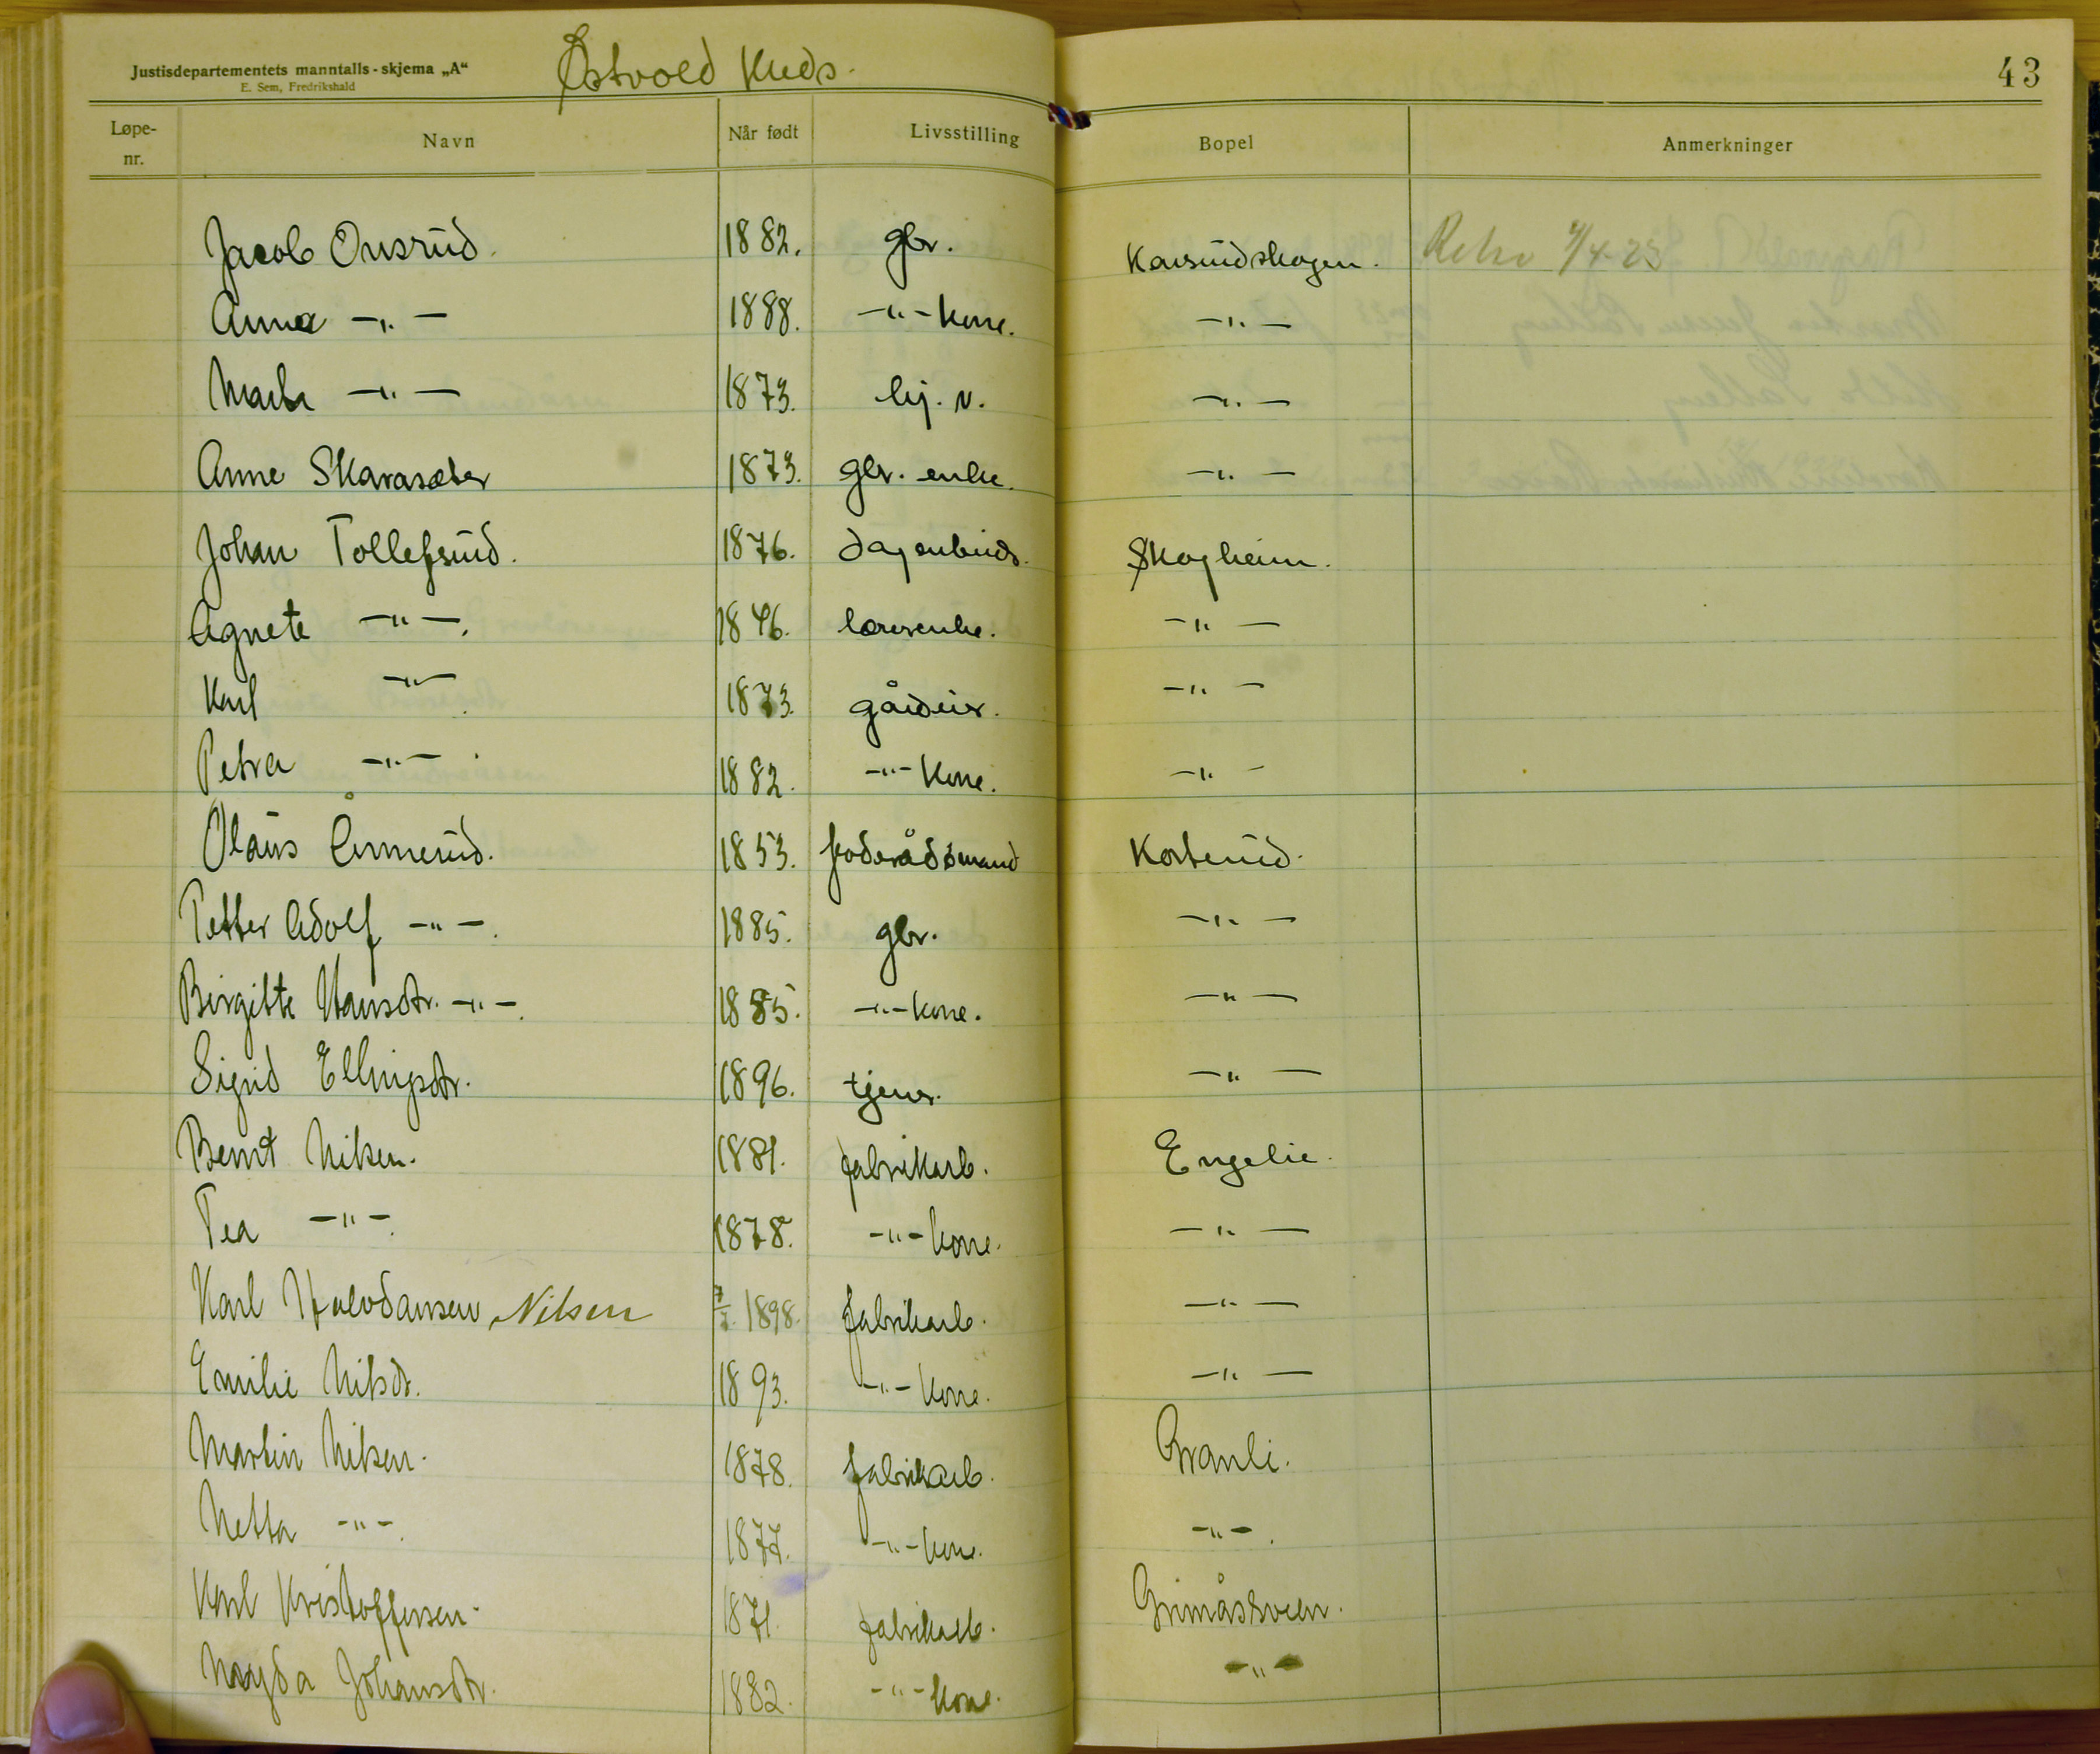 Justisdepartementets manntalls-skjema „A“
E. Sem, Fredrikshald
Østvold Kreds.
43
Løpe-nr. Navn Når født Livsstilling Bopel Anmerkninger
Jacob Onsrud. 1882. gbr. Korsrudskogen. 4/4-23
Anna —„— 1888. —„— kone. —„—
Marte —„— 1873. lej. v. —„—
Anne Skarasæter 1873. gbr. enke. —„—
Johan Tollefsrud. 1876. Skogheim.
Agnete —„—. 1846. lærerenke. —„—
Karl —„—. 1873. gårdeier. —„—
Petra —„—. 1882. —„— kone. —„—
Olaus Ånnerud. 1853. foderådsmand Korterud.
Petter Adolf —„—. 1885. gbr. —„—
Birgitte Hansdtr. —„—. 1885. —„— kone. —„—
Sigrid Ellingsdtr. 1896. tjener. —„—
Bernt Nilsen. 1881. fabrikarb. Engelie.
Tea —„—. 1878. —„— kone. —„—
Karl Halvdansen Nilsen 1898. fabrikarb. —„—
Emilie Nilsdt. 1893. —„— kone. —„—
Martin Nilsen. 1878. fabrikarb. Granli.
Netta —„—. 1877. —„— kone. —„—.
Karl Kristoffersen. 1871. fabrikarb. Grimåssveen.
Magda Johansdtr. 1882. —„— kone. —„—